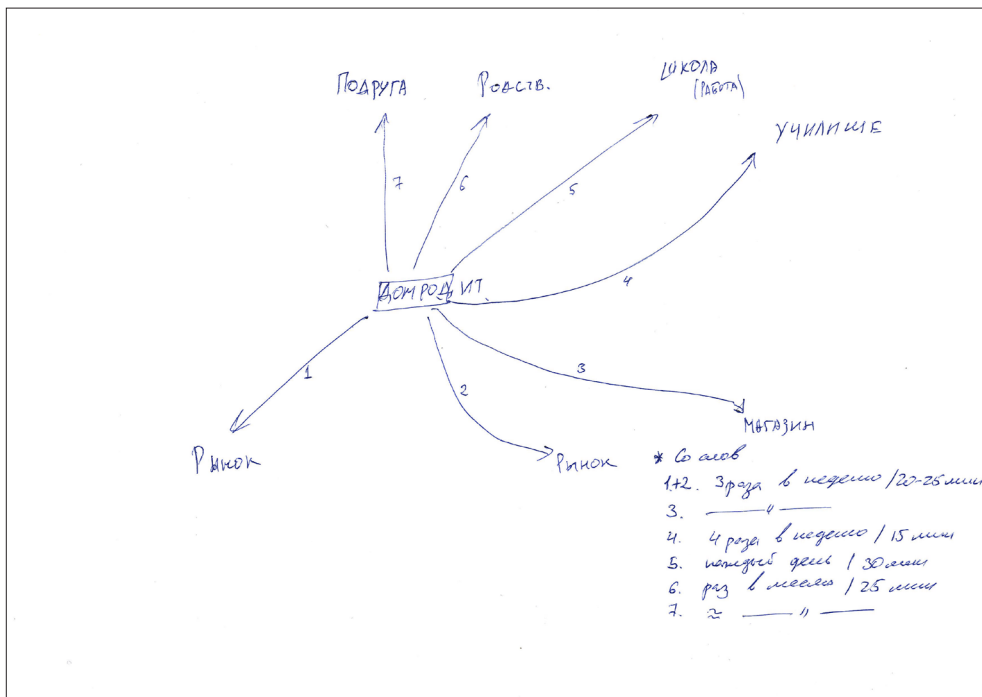 ПОДРУГА
РОДСТВ.
ШКОЛА
(РАБОТА)
УЧИЛИЩЕ
7
6
5
4
ДОМ РОДИТ.
1
2
3
РЫНОК
РЫНОК
МАГАЗИН
* Со слов
1+2. 3 раза в неделю /20-25 мин
3. — " —
4. 4 раза в неделю / 15 мин
5. каждый день / 30 мин
6. раз в месяц / 25 мин
7. ≈ — " —